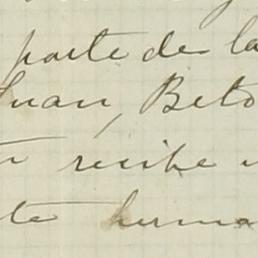 parte de la
Juan, Beto
recibe
te herma